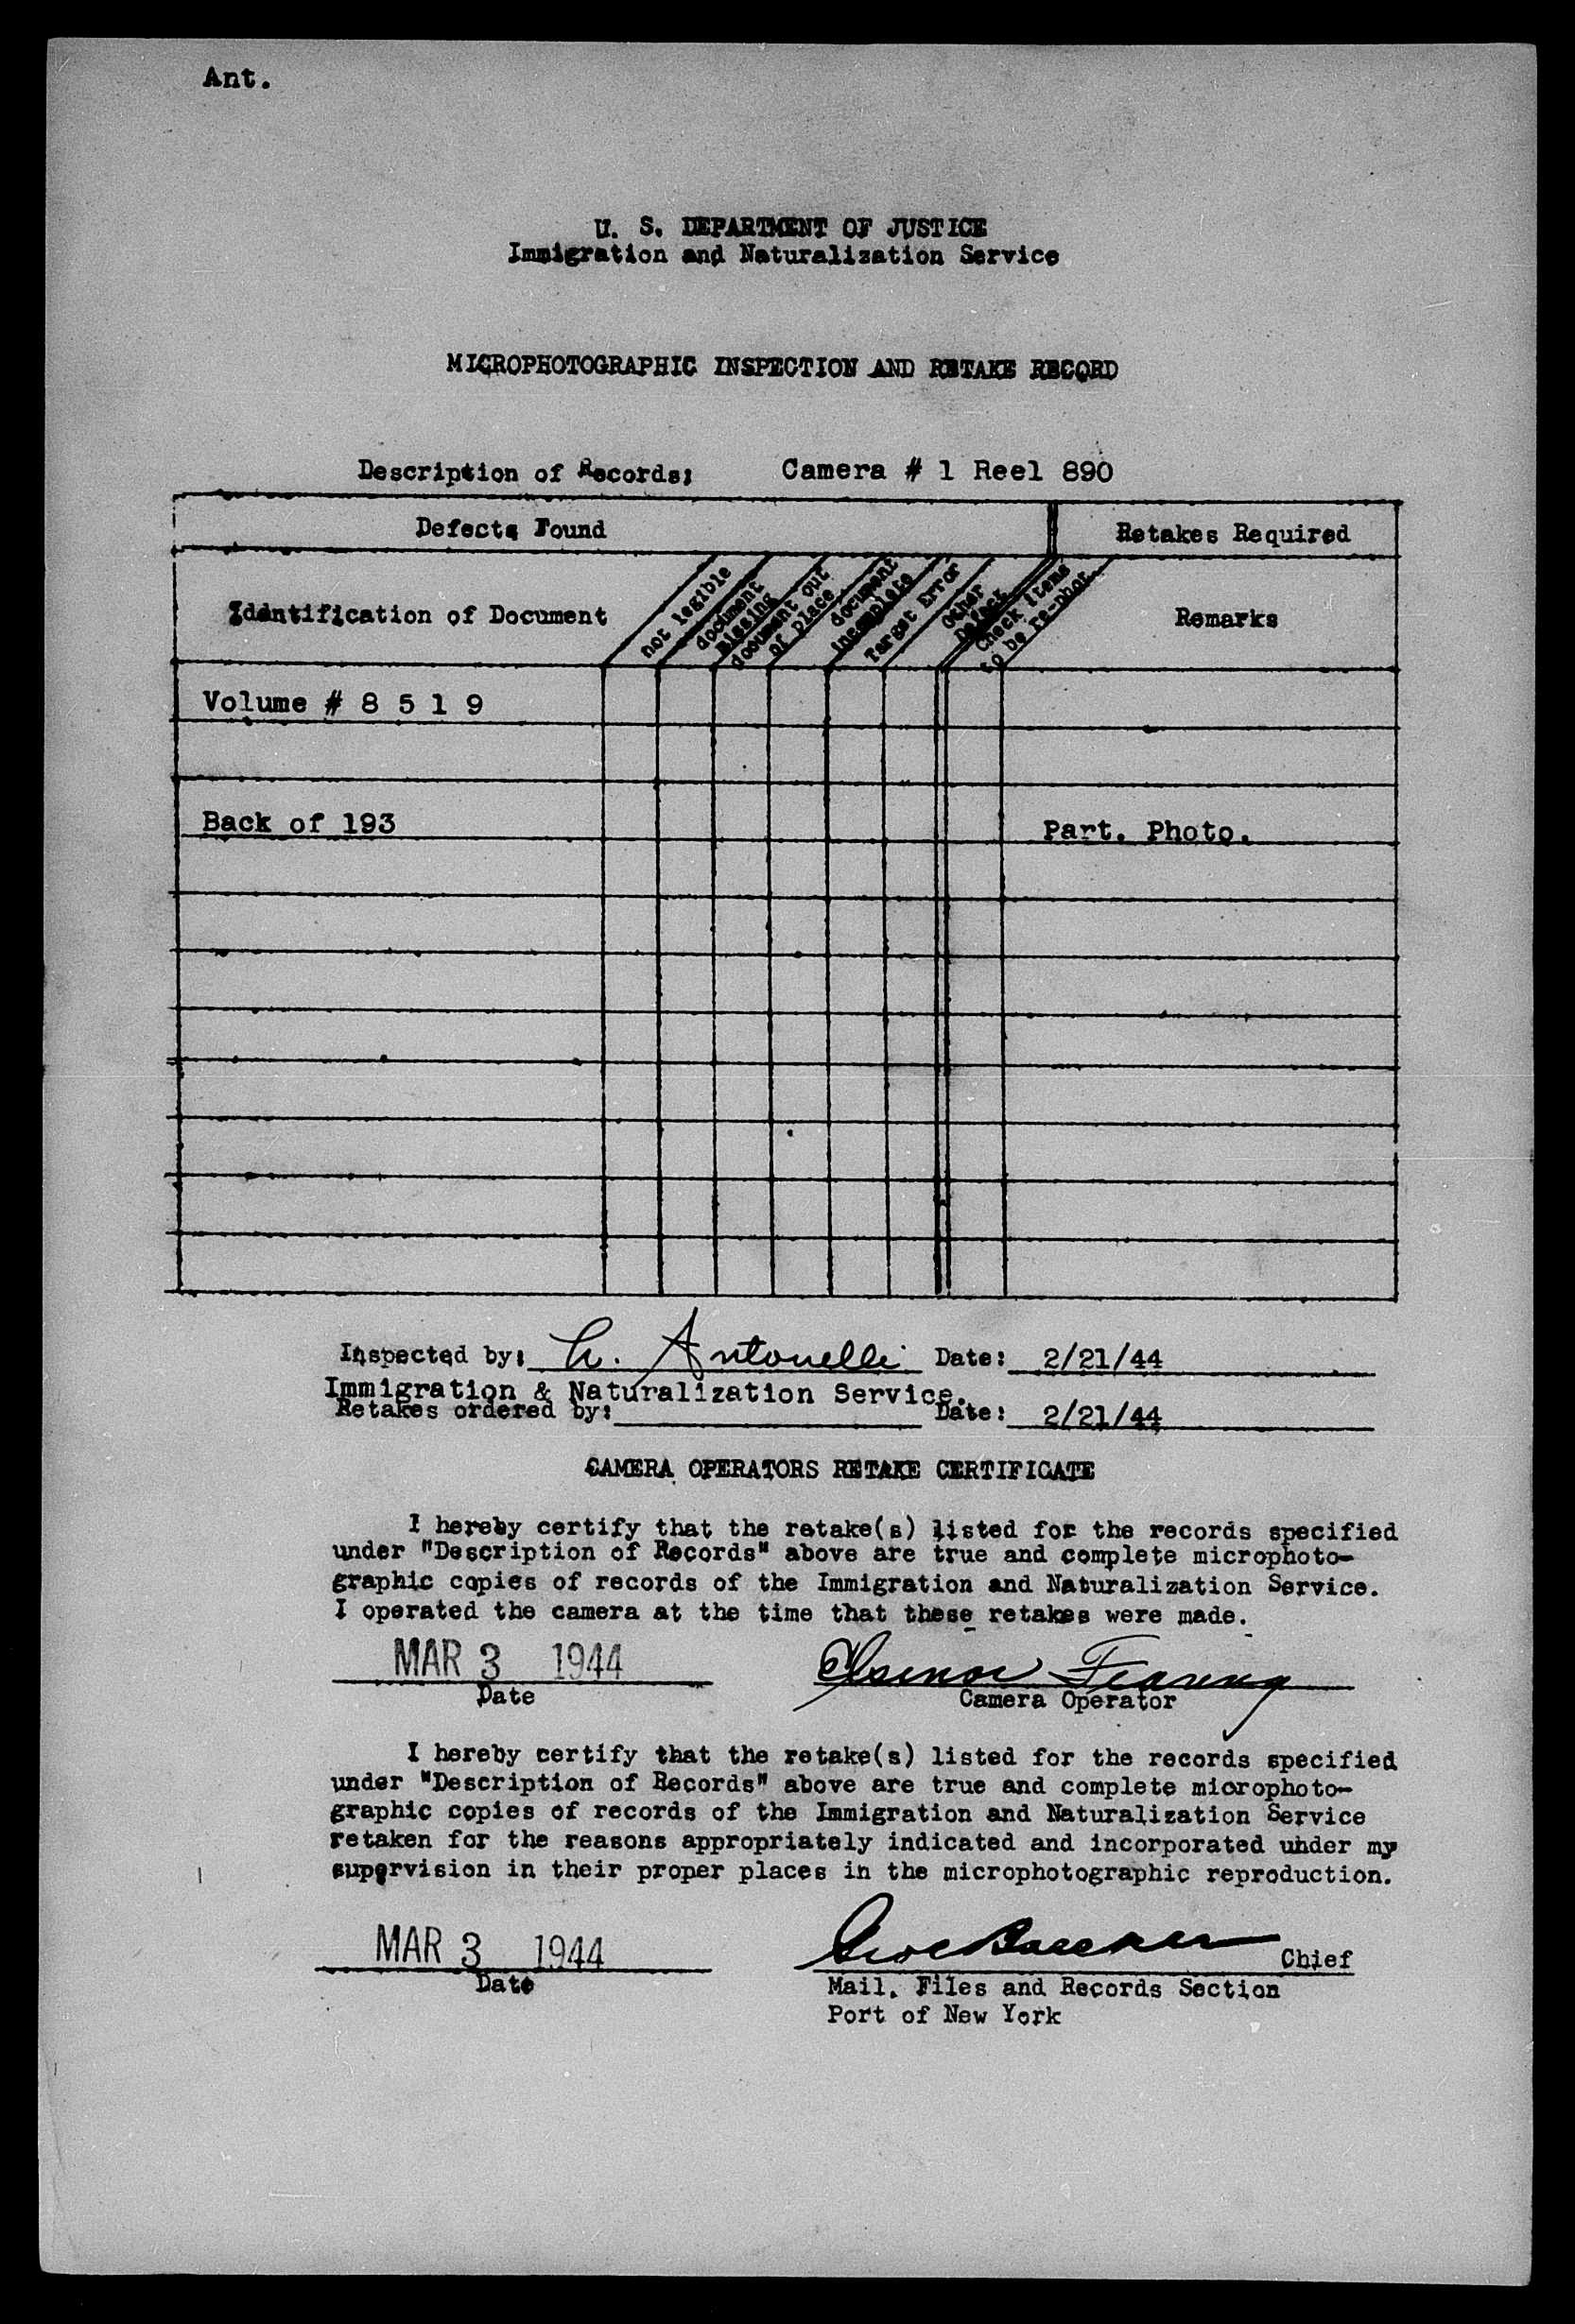 Ant.
U. S. DEPARTMENT OF JUSTICE
Immigration and Naturalization Service
MICROPHOTOGRAPHIC INSPECTION AND RETAKE RECORD
Description of Records: Camera # 1 Reel 890
Defects Found
Retakes Required
Identification of Document
not legible
document
missing
document out
of place
document
incomplete
Target Error
Other
Defect
Check Items
to be re-phot.
Remarks
Volume # 8 5 1 9
Back of 193
Part. Photo.
Inspected by: Antonelli Date: 2/21/44
Immigration & Naturalization Service.
Retakes ordered by: Date: 2/21/44
CAMERA OPERATORS RETAKE CERTIFICATE
I hereby certify that the retake(s) listed for the records specified
under "Description of Records" above are true and complete microphoto-
graphic copies of records of the Immigration and Naturalization Service.
I operated the camera at the time that these retakes were made.
MAR 3 1944
Date
Camera Operator
I hereby certify that the retake(s) listed for the records specified
under "Description of Records" above are true and complete microphoto-
graphic copies of records of the Immigration and Naturalization Service
retaken for the reasons appropriately indicated and incorporated under my
supervision in their proper places in the microphotographic reproduction.
MAR 3 1944
Date
Chief
Mail, Files and Records Section
Port of New York